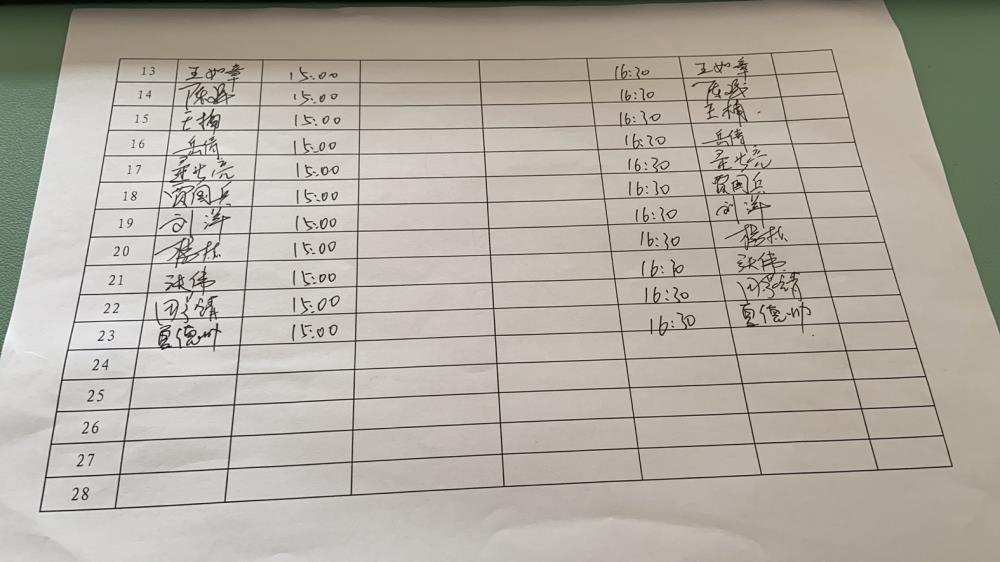 13 王如章 15:00 16:30 王如章
14 15:00 16:30
15 王楠 15:00 16:30 王楠
16 岳倩 15:00 16:30 岳倩
17 15:00 16:30
18 贾国兵 15:00 16:30 贾国兵
19 刘洋 15:00 16:30 刘洋
20 15:00 16:30
21 张伟 15:00 16:30 张伟
22 15:00 16:30
23 夏德帅 15:00 16:30 夏德帅
24
25
26
27
28